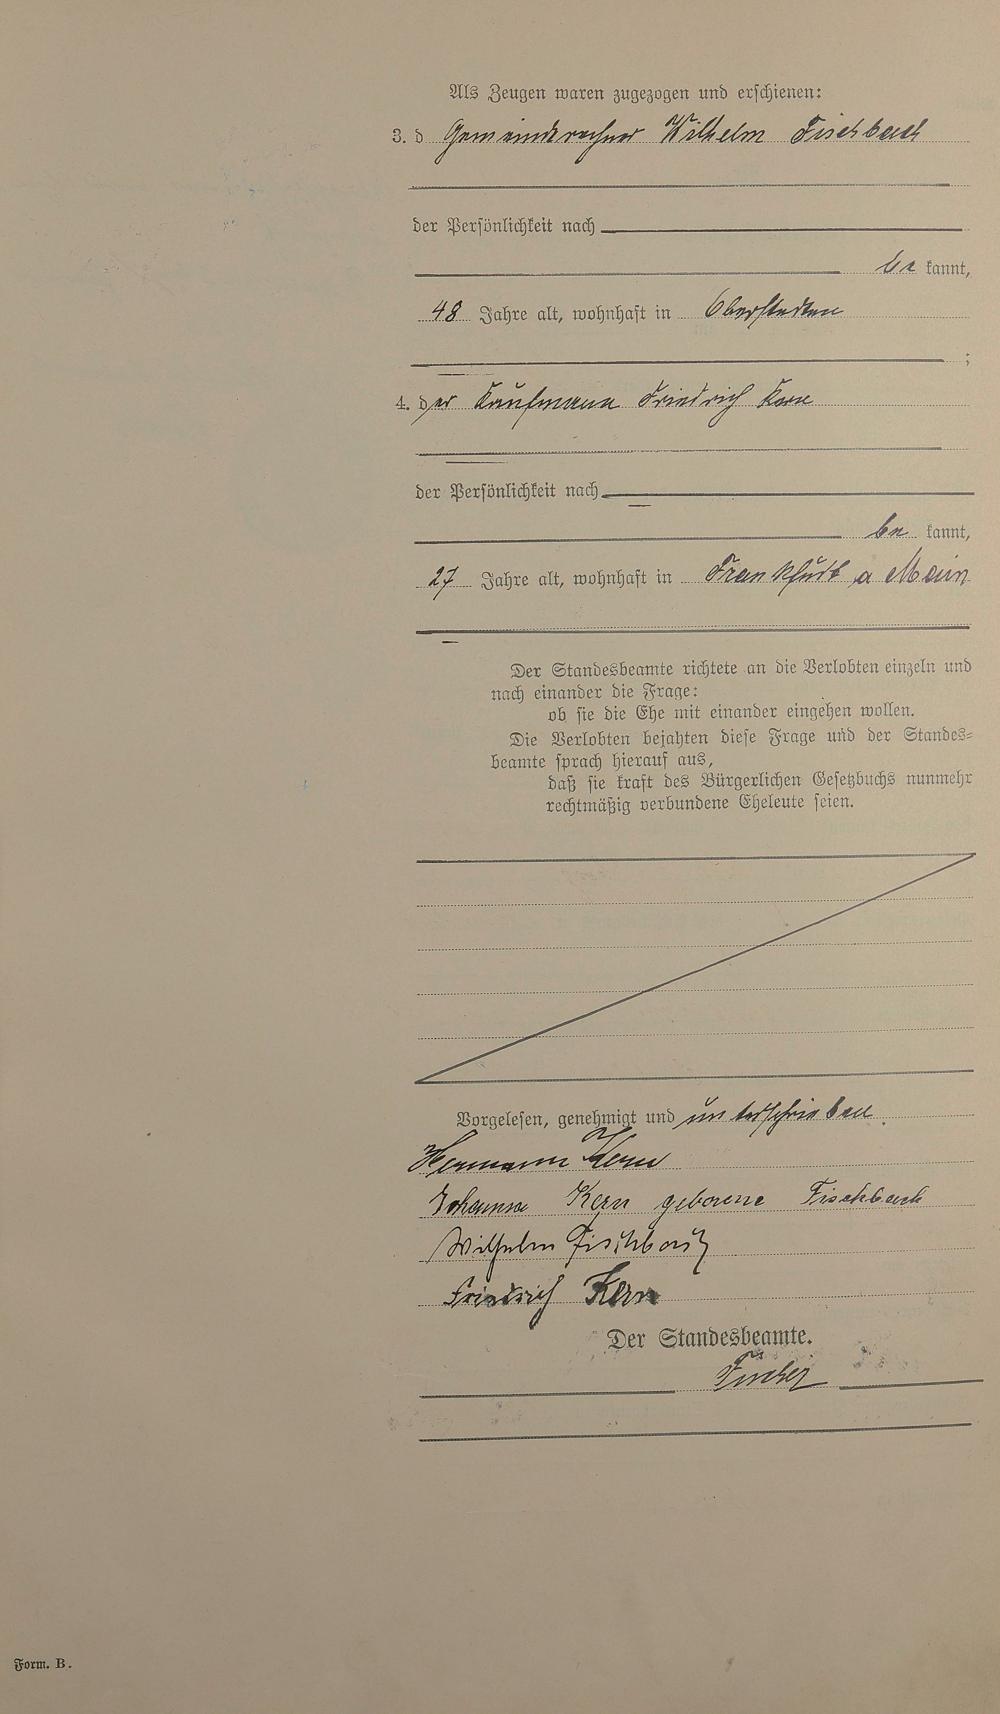 Als Zeugen waren zugezogen und erschienen:
3. d Gemeinderechner Wilhelm Fischbach
der Persönlichkeit nach
be kannt,
48 Jahre alt, wohnhaft in Oberstedten
;
4. der Kaufmann Friedrich Kern
der Persönlichkeit nach
be kannt,
27 Jahre alt, wohnhaft in Frankfurt a Main
Der Standesbeamte richtete an die Verlobten einzeln und
nach einander die Frage:
ob sie die Ehe mit einander eingehen wollen.
Die Verlobten bejahten diese Frage und der Standes-
beamte sprach hierauf aus,
daß sie kraft des Bürgerlichen Gesetzbuchs nunmehr
rechtmäßig verbundene Eheleute seien.
Vorgelesen, genehmigt und unterschrieben.
Hermann Kern
Johanna Kern geborene Fischbach
Wilhelm Fischbach
Friedrich Kern
Der Standesbeamte.
Form. B.